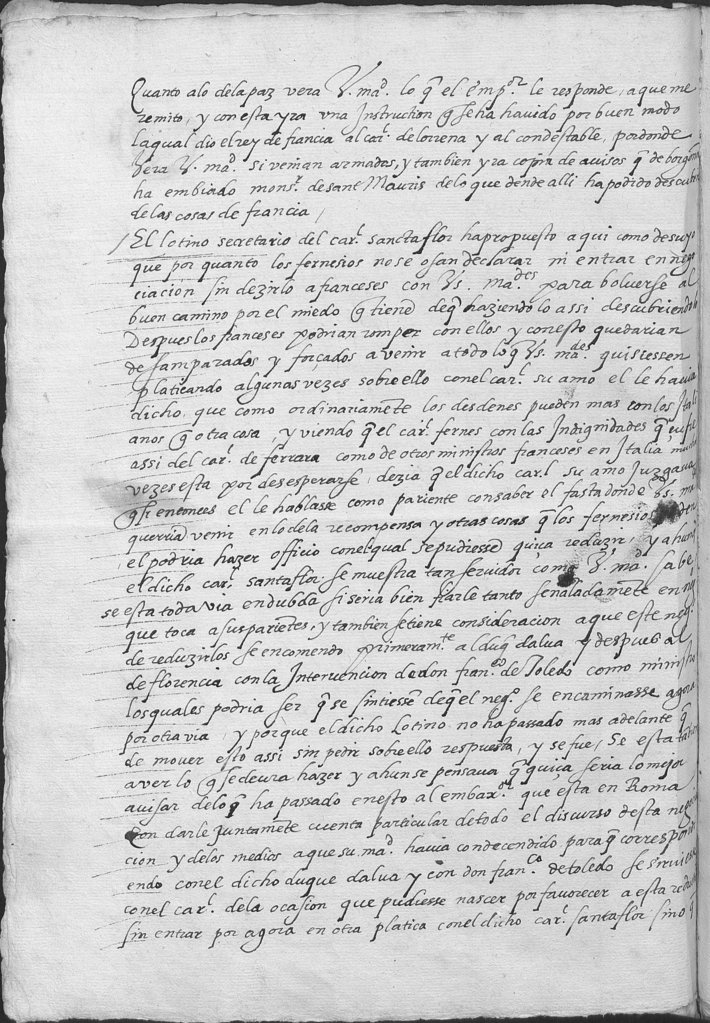 Quanto alo dela paz vera V. mad. lo q̃ el emp.or le responde, a que me
remito, y con esta yra vna Instruction q̃ se ha havido por buen modo
la qual dio el rey de francia al car.l de lorena y al condestable, por donde
Vera V. mad. si vernan armados, y tambien yra copia de auisos q̃ de borgoña
ha embiado mons.r de sant Mauris delo que dende alli ha podido descubrir
de las cosas de francia,
/ El lotino secretario del car.l sancta flor ha propuesto a qui como de suyo
que por quanto los fernesios no se osan declarar ni entrar en nego
ciacion sin dezirlo a franceses con Vs. mades para boluerse al
buen camino por el miedo q̃ tienen deq̃ haziendo lo assi descubriendo lo
Despues los franceses podrian romper con ellos y con esto quedarian
desamparados y forçados a venir a todo lo q̃ Vs. mades quisiessen
platicando algunas vezes sobre ello con el car.l su amo el le havia
dicho que como ordinariamẽte los desdenes pueden mas con los Itali
anos q̃ otra cosa, y viendo q̃ el car.l fernes con las Indignidades q̃ sufre
assi del car.l de ferrara como de otros ministros franceses en Italia muchas
vezes esta por desesperarse, dezia q̃ el dicho car.l su amo Juzgaua
q̃ si entonces el le hablasse como pariente con saber el fasta donde Vs. mades
querria venir en lo dela recompensa y otras cosas q̃ los fernesios
el podria hazer officio con el qual se pudiessen quiça reduzir, y ahunq̃
el dicho car.l santa flor se muestra tan seruidor como V. mad. sabe
se esta toda via en dubda si seria bien fiarle tanto señaladamẽte en neg.o
que toca a sus pariẽtes, y tambien se tiene consideracion a que este neg.o
de reduzirlos se encomendo primeram.te al duq̃ dalua y despues al
de florencia con la Interuencion de don fran.co de Toledo como ministro
los quales podria ser q̃ se sintiessen de q̃ el neg.o se encaminasse agora
por otra via, y porque el dicho Lotino no ha passado mas adelante q̃
de mouer esto assi sin pedir sobre ello respuesta, y se fue, Se esta
a ver lo q̃ se deura hazer y ahun se pensaua q̃ quiça seria lo mejor
auisar delo q̃ ha passado en esto al embax.or que esta en Roma
Con darle Juntamẽte cuenta particular de todo el discurso desta nego
cion y delos medios a que su mad. havia condecendido para q̃ correspondi
endo con el dicho duque dalua y con don fran.co de toledo se siruiesse
con el car.l dela ocasion que pudiesse nascer por fauorecer a esta
sin entrar por agora en otra platica con el dicho car.l santa flor sino q̃